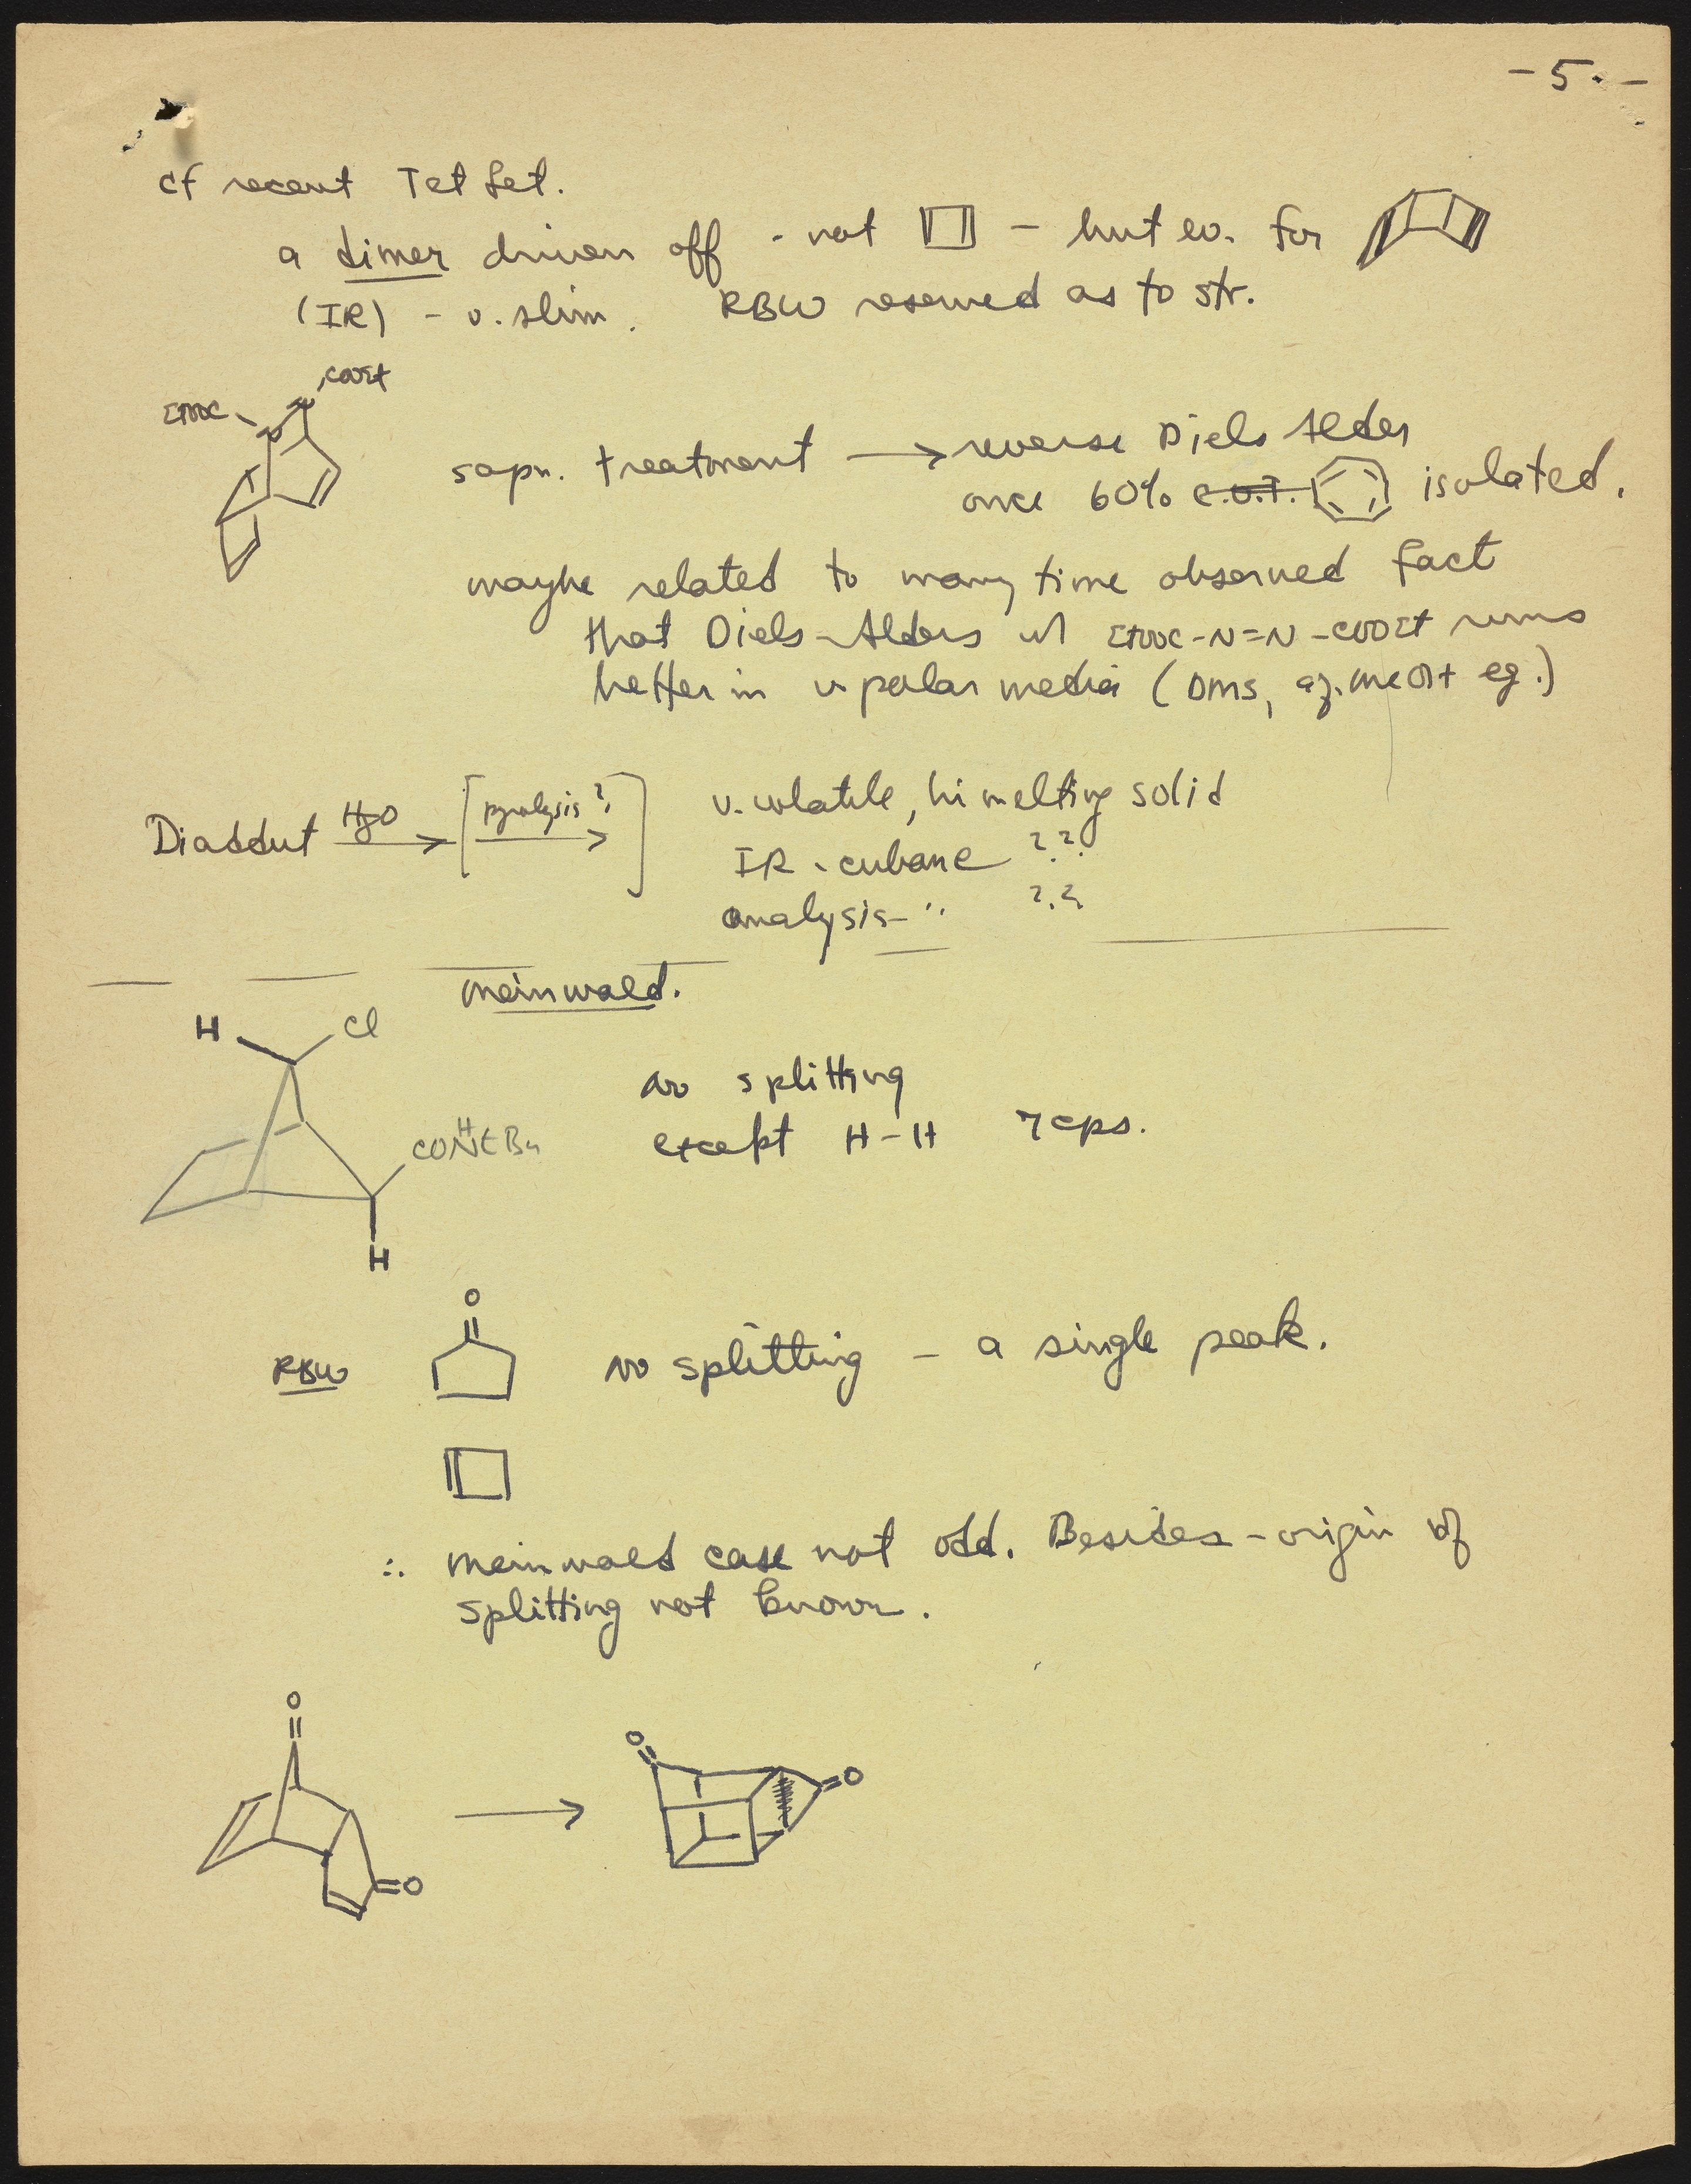 - 5. -
cf recent Tet Let.
a dimer driven off - not - but ev. for
(IR) - v. slim. RBW reserved as to str.
COOEt
EtOOC N N
sapn. treatment → reverse Diels Alder
once 60% C.O.T. isolated.
maybe related to many time observed fact
that Diels-Alders w/ EtOOC-N=N-COOEt runs
better in v polar media (DMS, aq. MeOH eg.)
Diadduct H2O → [ pyrolysis? → ] v. volatile, hi melting solid
IR - cubane ? ? ?
analysis - " ? ?
Meinwald.
H Cl
no splitting
except H-H 7 cps.
CONHtBu
H
O
RBW no splitting - a single peak.
∴ Meinwald case not odd. Besides - origin of
splitting not known.
O
→ O O
O